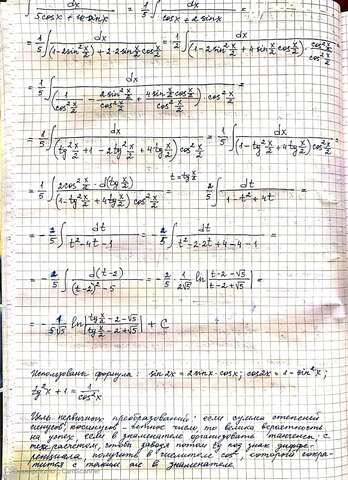 ∫ dx / (5cosx + 10sinx) = 1/5 ∫ dx / (cosx + 2sinx) =
= 1/5 ∫ dx / ((1-2sin² x/2) + 2·2sin x/2 cos x/2) = 1/2 ∫ dx / ((1-2sin² x/2 + 4sin x/2 cos x/2) · cos² x/2 / cos² x/2) =
= 1/5 ∫ dx / ((1/cos² x/2 - 2sin² x/2 / cos² x/2 + 4sin x/2 cos x/2 / cos² x/2) · cos² x/2) =
= 1/5 ∫ dx / ((tg² x/2 + 1 - 2tg² x/2 + 4tg x/2) cos² x/2) = 1/5 ∫ dx / ((1-tg² x/2 + 4tg x/2) cos² x/2) =
= 1/5 ∫ 2cos² x/2 · d(tg x/2) / ((1-tg² x/2 + 4tg x/2) · cos² x/2) = t = tg x/2 2/5 ∫ dt / (1-t²+4t) =
= - 2/5 ∫ dt / (t²-4t-1) = - 2/5 ∫ dt / (t²-2·2t+4-4-1) =
= - 2/5 ∫ d(t-2) / ((t-2)²-5) = - 2/5 · 1/(2√5) ln |(t-2-√5)/(t-2+√5)| =
= - 1/(5√5) ln |(tg x/2 -2-√5)/(tg x/2 -2+√5)| + C
Использованы формулы: sin2x = 2sinx·cosx; cos2x = 1-sin²x;
tg²x + 1 = 1/cos²x
Цель первичных преобразований: если сумма степеней
синусов, косинусов - четное число, то велика вероятность
на успех, если в знаменателе организовать тангенсы, с
тем расчетом, чтобы заводя потом tg под знак диффе-
ренциала, получить в числителе cos², который сокра-
тится с таким же в знаменателе.